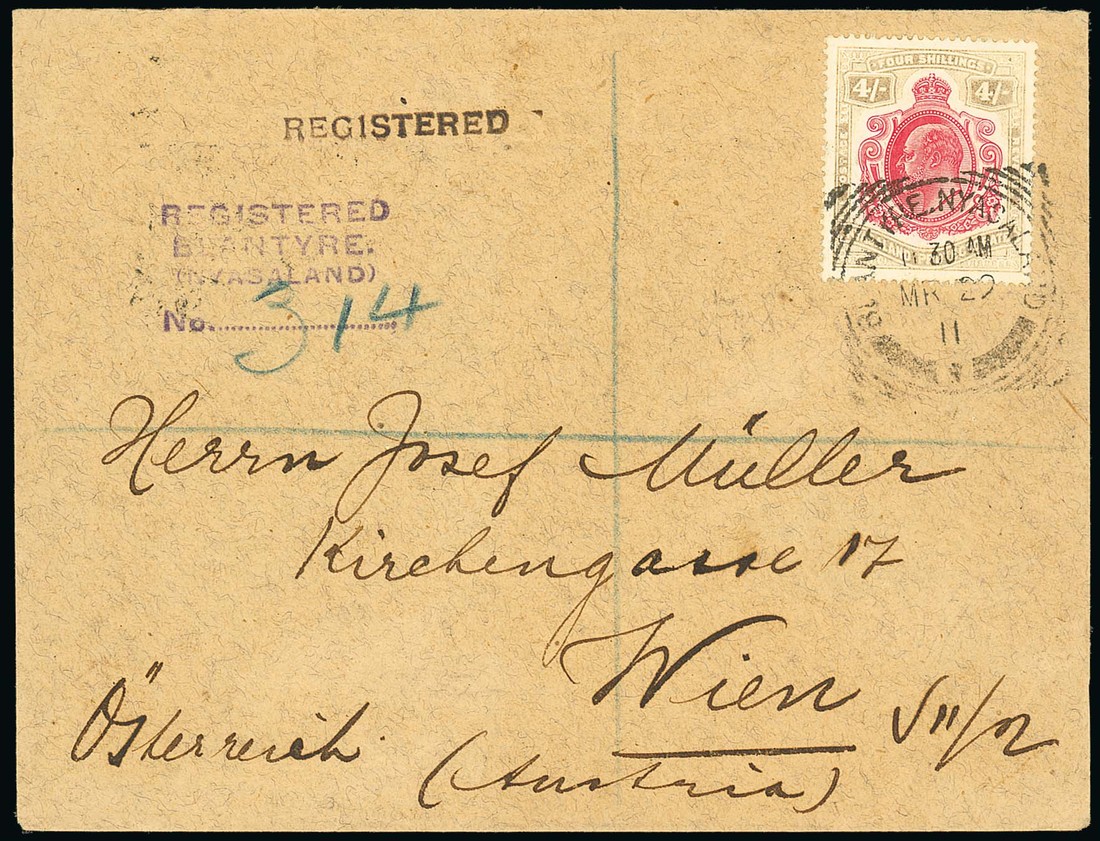 FOUR SHILLINGS
4/- 4/-
REGISTERED
REGISTERED
BLANTYRE.
(NYASALAND)
No. 314
BLANTYRE. NYASALAND
30 AM
MR 29
11
Herrn Josef Müller
Kirchengasse 17
Wien
Österreich
(Austria)